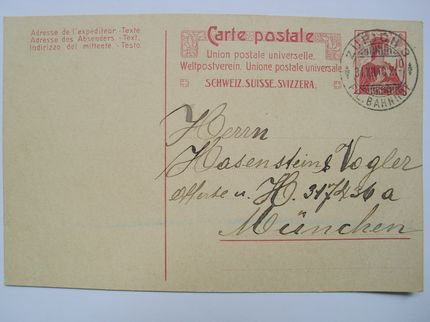 Adresse de l'expéditeur.-Texte
Adresse des Absenders.-Text.
Indirizzo del mittente.-Testo
Carte postale
Union postale universelle.
Weltpostverein. Unione postale universale
SCHWEIZ.SUISSE.SVIZZERA.
ZÜRICH 2
FIL. BAHNHOF
10
Herrn
Hasenstein & Vogler
Offerte u. H. 317436 a
München